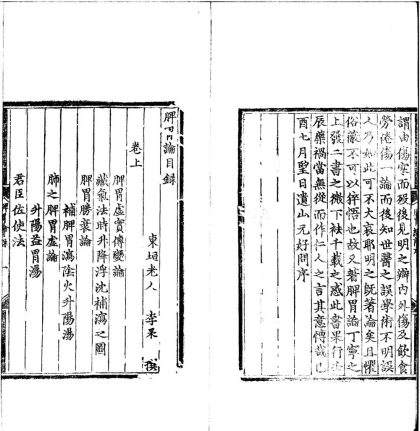 謂由傷寒而歿後見明之辯内外傷及飲食
勞倦傷一論而後知世醫之誤學術不明誤
人乃如此可不大哀耶明之既著論矣且懼
俗蔽不可以猝悟也故又著脾胃論丁寧之
上發二書之微下祛千載之惑此書果行壬
辰藥禍當無從而作仁人之言其意博哉己
酉七月望日遺山元好問序
脾胃論目録
東垣老人 李杲 撰
卷上
脾胃虛實傳變論
藏氣法時升降浮沈補瀉之圖
脾胃勝衰論
補脾胃瀉陰火升陽湯
肺之脾胃虛論
升陽益胃湯
君臣佐使法